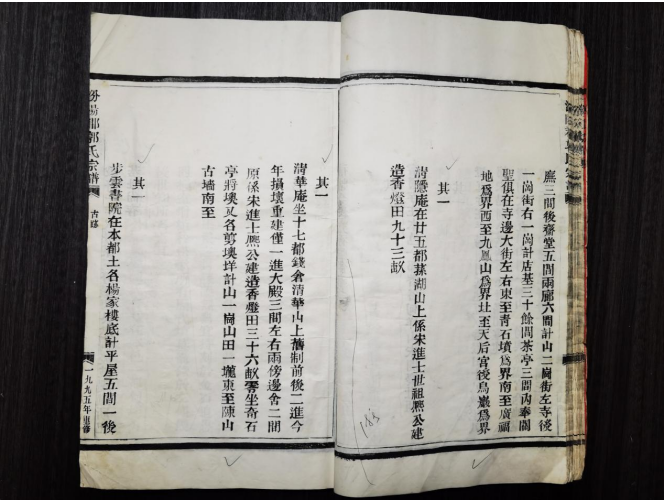 廡三間後齋堂五間兩廊六間計山二崗街左寺後
一崗街右一崗計店基三十餘間茶亭三間內奉關
聖俱在寺邊大街左右東至青石墳爲界南至廣福
地爲界西至九鳳山爲界北至天后宮後烏巖爲界
其一
清隱庵在廿五都菻湖山上係宋進士世祖熈公建
造香燈田九十三畝
其一
清華庵坐十七都錢倉清華山上舊制前後二進今
年損壞重建僅一進大殿三間左右兩傍邊舍二間
原係宋進士熈公建造香燈田三十六畝零坐奇石
亭將墺又各剪墺垟計山一崗山田一壠東至陳山
古墻南至
其一
步雲書院在本都土名楊家樓底計平屋五間一後
汾陽郡郭氏宗譜
古蹟
一九九五年重修
185